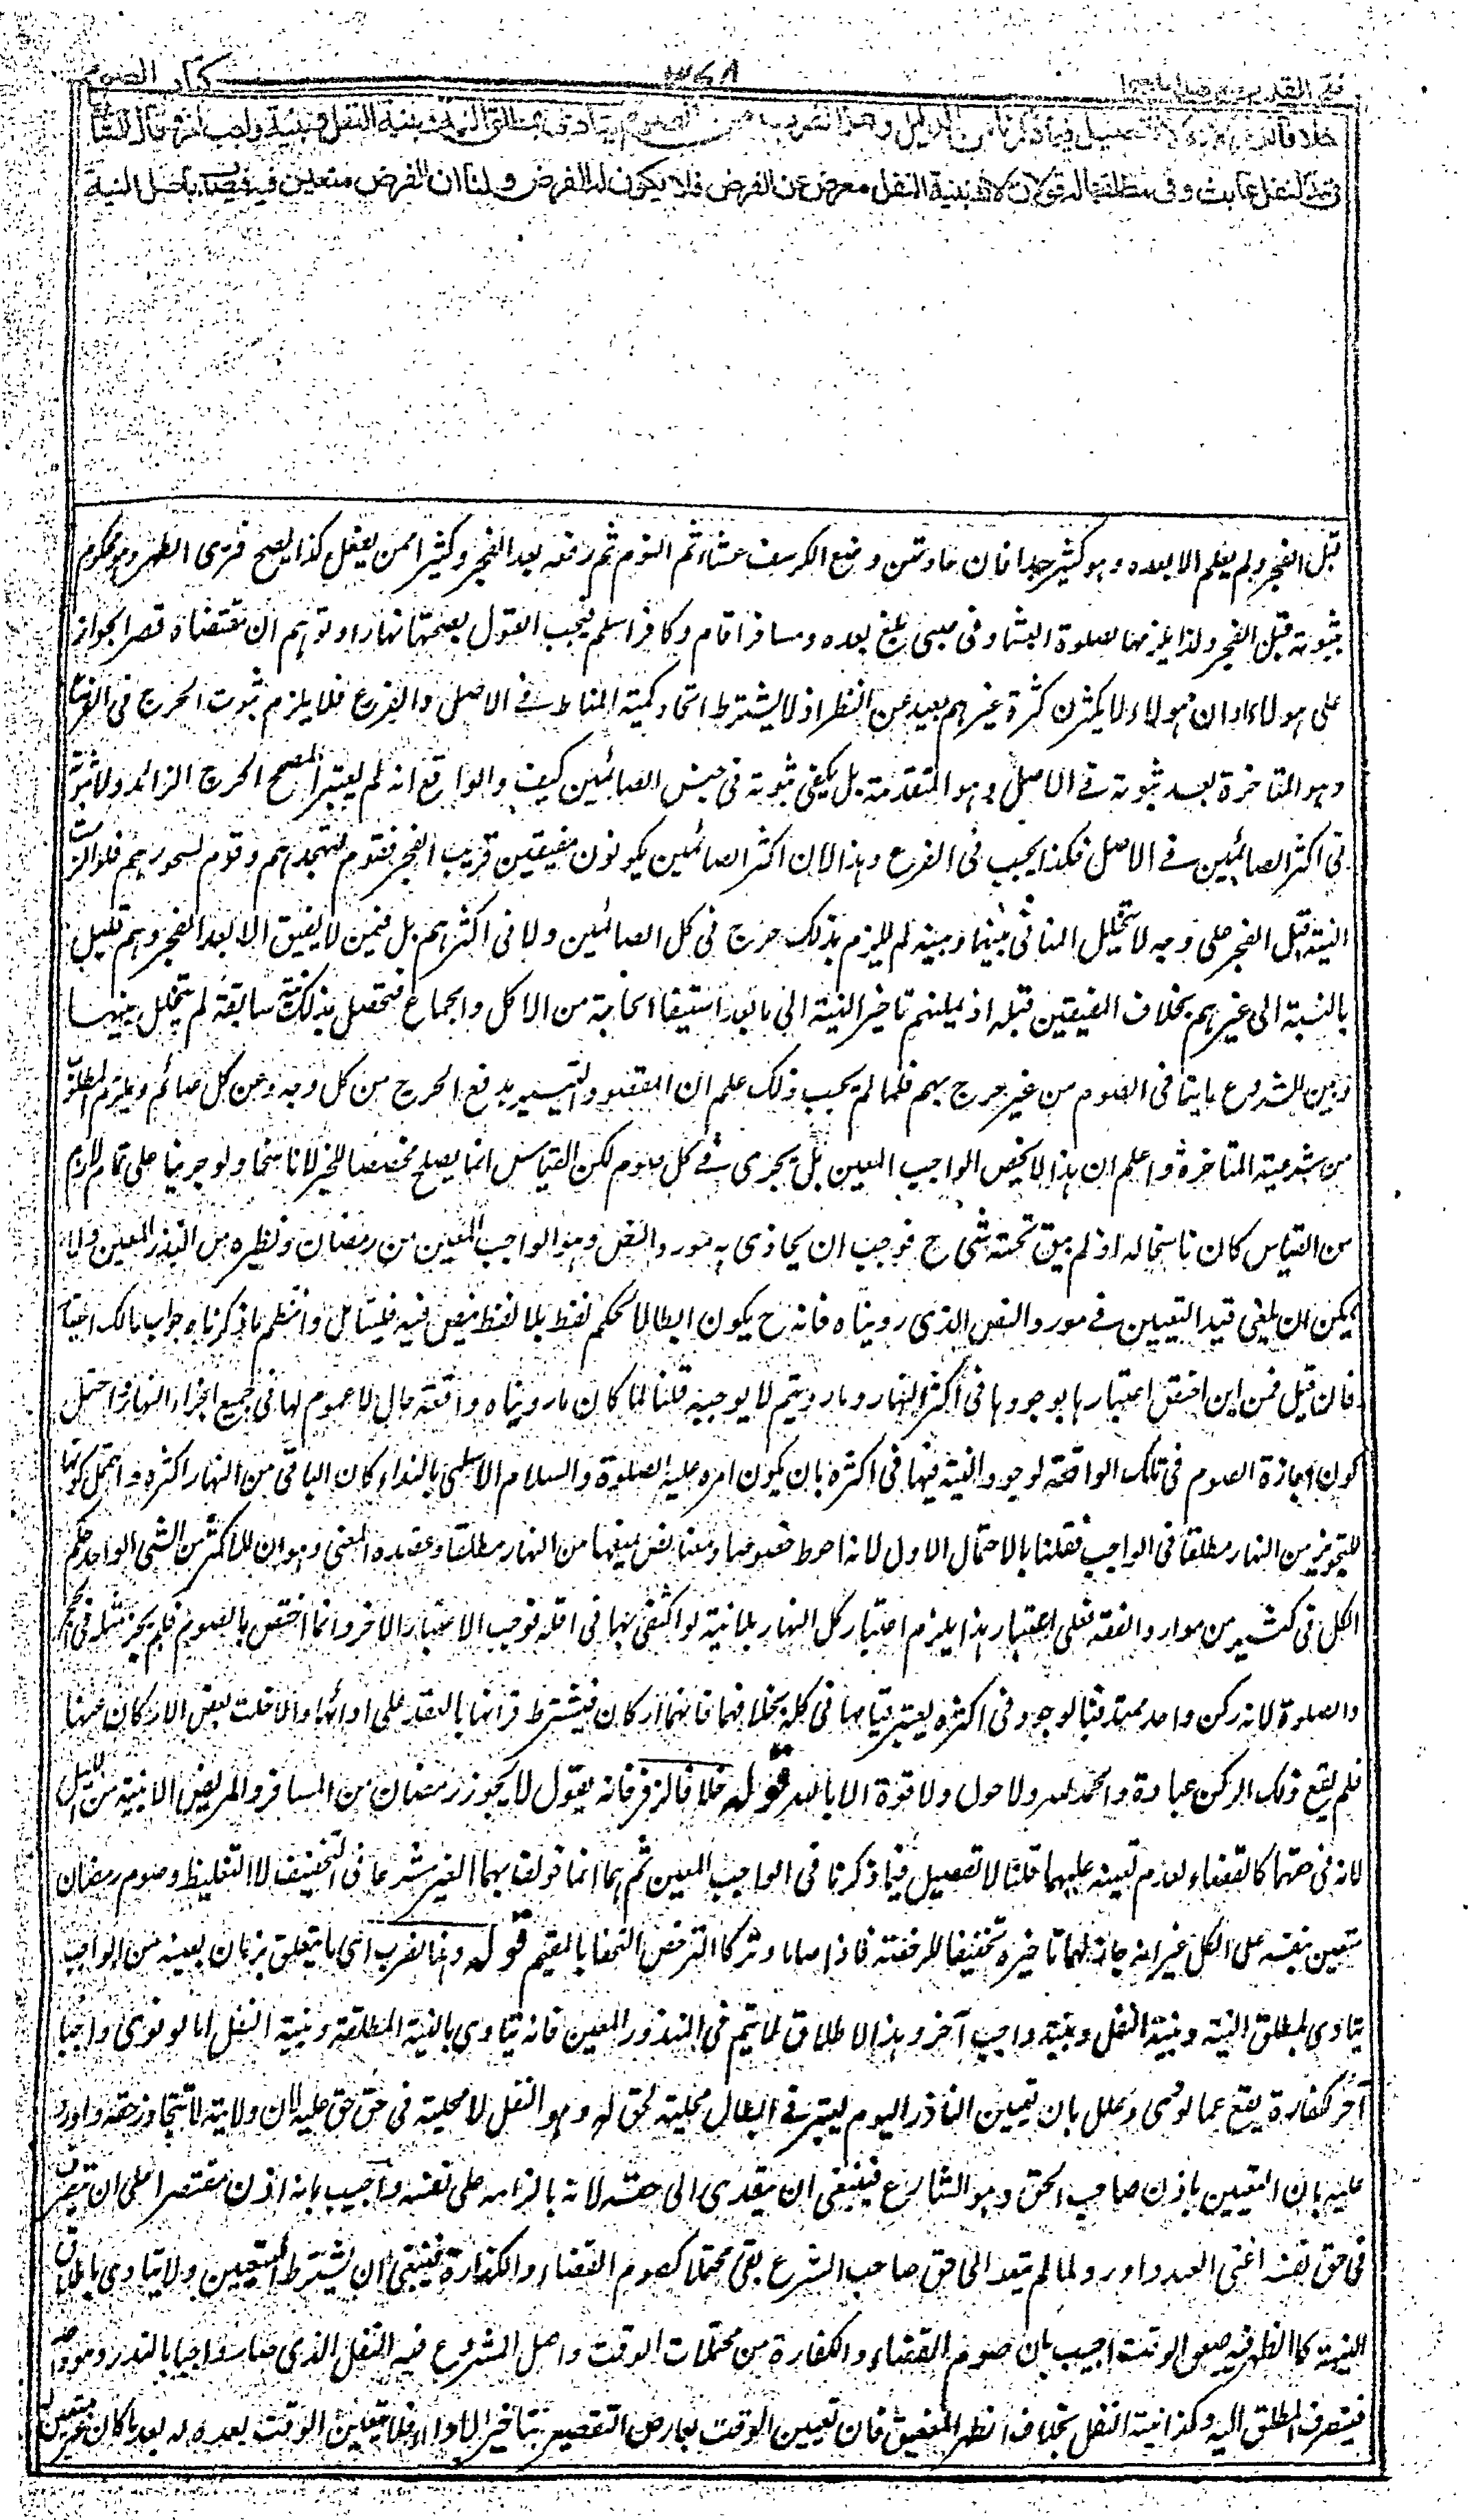 كتاب الصوم ٣٦٨ فتح القدير مع هداية جلد ١
خلافا لزفر لانه لا تفصيل فيما ذكرنا من الدليل وهذا الضرب من الصوم يتادى بمطلق النية وبنية النفل وبنية واجب اخر وقال الشافعي
فى نية النفل عابث وفى مطلقها له قولان لانه بنية النفل معرض عن الفرض فلا يكون له الفرض ولنا ان الفرض متعين فيه فيصاب باصل النية
قبل الفجر ولم يعلم الا بعده وهو كثير جدا فان عادتهن وضع الكرسف عشاء ثم النوم ثم رفعه بعد الفجر وكثيرا ممن يفعل كذا يصبح فترى الطهر وهو محكوم
بثبوته قبل الفجر ولذا يلزمها بصلوة العشاء وفى صبى بلغ بعده ومسافر اقام وكافر اسلم فيجب القول بصحتها نهارا وتوهم ان مقتضاه قصر الجواز
على هولاء او ان هولاء لا يكثرن كثرة غيرهم بعيد عن النظر اذ لا يشترط اتحاد كمية المناط فے الاصل والفرع فلا يلزم ثبوت الحرج فى الفرع
وهو المتاخرة بعد ثبوته فے الاصل وهو المتقدمة بل يكفى ثبوته فى جنس الصائمين كيف والواقع انه لم يعتبر المصحح الحرج الزائد ولا ثبوته
فى اكثر الصائمين فے الاصل فكذا يجب فى الفرع وهذا لان اكثر الصائمين يكونون مفيقين قريب الفجر فقوم لتهجدهم وقوم لسحورهم فلو الزمت
النية قبل الفجر على وجه لا يتخلل المنافى بينها وبينه لم يلزم بذلك حرج فى كل الصائمين ولا فى اكثرهم بل فيمن لا يفيق الا بعد الفجر وهم قليل
بالنسبة الى غيرهم بخلاف المفيقين قبله اذ يمكنهم تاخير النية الى ما بعد استيفاء الحاجة من الاكل والجماع فتحصل بذلك نية سابقة لم يتخلل بينها
وبين الشروع ما ينافى الصوم من غير حرج بهم فلما لم يجب ذلك علم ان المقصود التيسير بدفع الحرج من كل وجه وعن كل صائم ويلزم المطلوب
من شرعية المتاخرة واعلم ان هذا لا يخص الواجب المعين بل يجزى فے كل صوم لكن القياس انما يصلح مخصصا للخبر لا ناسخا ولو جرينا على تمام لازم
من القياس كان ناسخا له اذ لم يبق تحته شئ ح فوجب ان يحاذى به مورد النص وهو الواجب المعين من رمضان ونظيره من النذر المعين ولا
يمكن ان يلغى قيد التعيين فے مورد النص الذى رويناه فانه ح يكون ابطالا لحكم لفظ بلا لفظ بنص فيه فليتامل وانتظم ما ذكرنا جواب مالك ايضا
فان قيل فمن اين اختص اعتبارها بوجودها فى اكثر النهار وما رويتم لا يوجبه قلنا لما كان ما رويناه واقعة حال لا عموم لها فى جميع اجزاء النهار واحتمل
كون اجازة الصوم فى تلك الواقعة لوجود النية فيها فى اكثره بان يكون امره عليه الصلوة والسلام الاسلمى بالنداء كان الباقى من النهار اكثره واحتمل كونها
للتجويز من النهار مطلقا فى الواجب فقلنا بالاحتمال الاول لانه احوط خصوصا ومعنا نص يمنعها من النهار مطلقا وعضده المعنى وهو ان للاكثر من الشئ الواحد حكم
الكل فى كثير من موارد الفقه فعلى اعتبار هذا يلزم اعتبار كل النهار بلا نية لو اكتفى بها فى اقله فوجب الاعتبار الاخر وانما اختص بالصوم فلم يجز مثله فى الحج
والصلوة لانه ركن واحد ممتد فبالوجود فى اكثره يعتبر قيامها فى كله بخلافهما فانهما اركان فيشترط قرانها بالعقد على ادائها والا خلت بعض الاركان عنها
فلم يقع ذلك الركن عبادة والحمد لله ولا حول ولا قوة الا بالله قوله خلافا لزفر فانه يقول لا يجوز رمضان من المسافر والمريض الا بنية من الليل
لانه فى حقهما كالقضاء لعدم تعينه عليهما قلنا لا تفصيل فيما ذكرنا فى الواجب المعين ثم هما انما خولف بهما الغير شرعا فى التخفيف لا التغليظ وصوم رمضان
متعين بنفسه على الكل غير انه جاز لهما تاخيره تخفيفا للرخصة فاذا صاما وتركا الترخص التحقا بالمقيم قوله وهذا الضرب اى ما يتعلق بزمان بعينه من الواجب
يتادى بمطلق النية وبنية النفل وبنية واجب آخر وهذا الاطلاق لا يتم فى المنذور المعين فانه يتادى بالنية المطلقة وبنية النفل اما لو نوى واجبا
آخر ككفارة يقع عما نوى وعلل بان تعيين الناذر اليوم يعتبر فے ابطال محلية لحق له وهو النفل لا محلية فى حق حق عليه لان ولايته لا تتجاوز حقه واورد
عليه بان التعيين باذن صاحب الحق وهو الشارع فينبغى ان يتعدى الى حقه لاذنه بالزامه على نفسه واجيب بانه اذن مقتصرا على ان يتصرف
فى حق نفسه اعنى العبد واورد لما لم يتعد الى حق صاحب الشرع بقى محتملا لصوم القضاء والكفارة فينبغى ان يشترط التعيين ولا يتادى باطلاق
النية كالظهر فيه ضيق الوقت اجيب بان صوم القضاء والكفارة من محتملات الوقت واصل المشروع فيه النفل الذى صار واجبا بالنذر وهو واحد
فينصرف المطلق اليه وكذا نية النفل بخلاف الظهر المضيق فان تعيين الوقت بعارض التقصير بتاخير الاداء فلا يتعين الوقت بعده له بعد ما كان غير متعين له